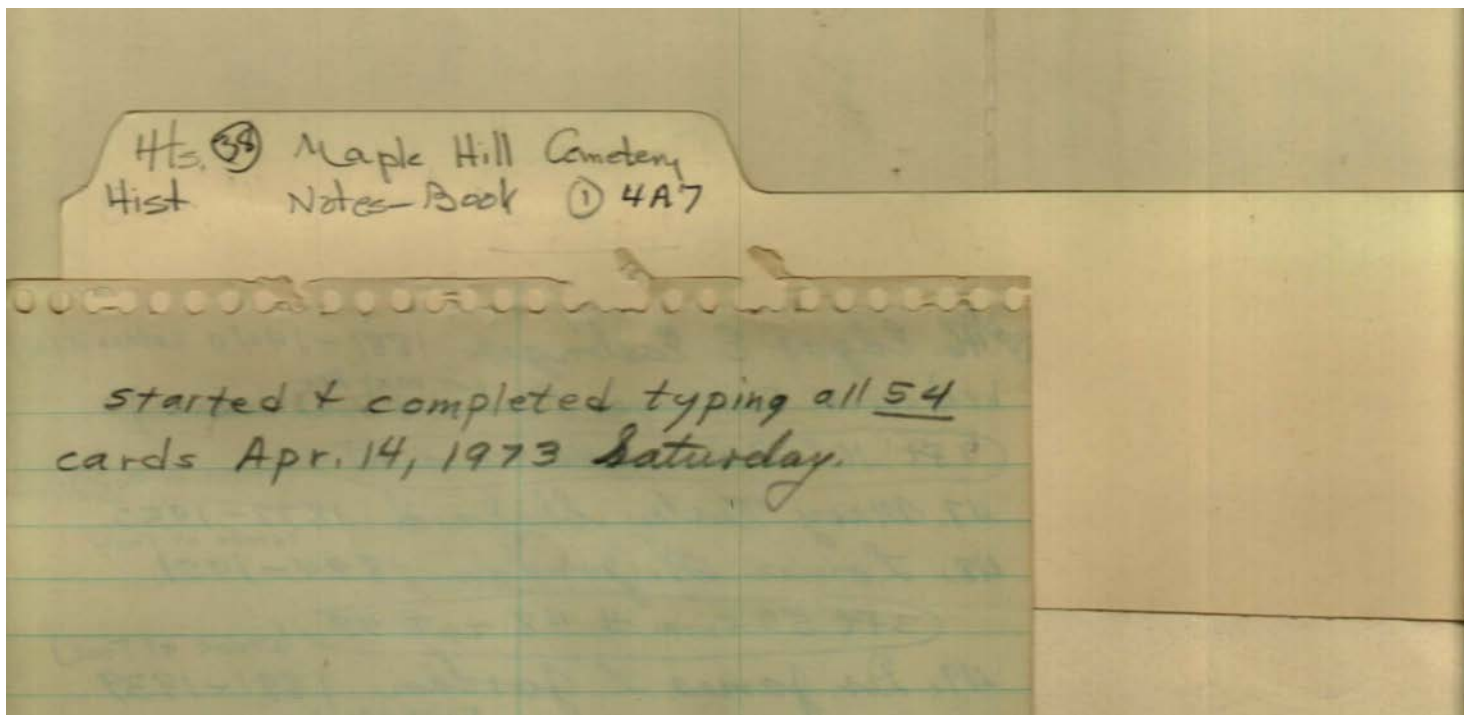 Hts. 38 Maple Hill Cemetery
Hist Notes-Book 1 4A7
started & completed typing all 54
cards Apr. 14, 1973 Saturday.